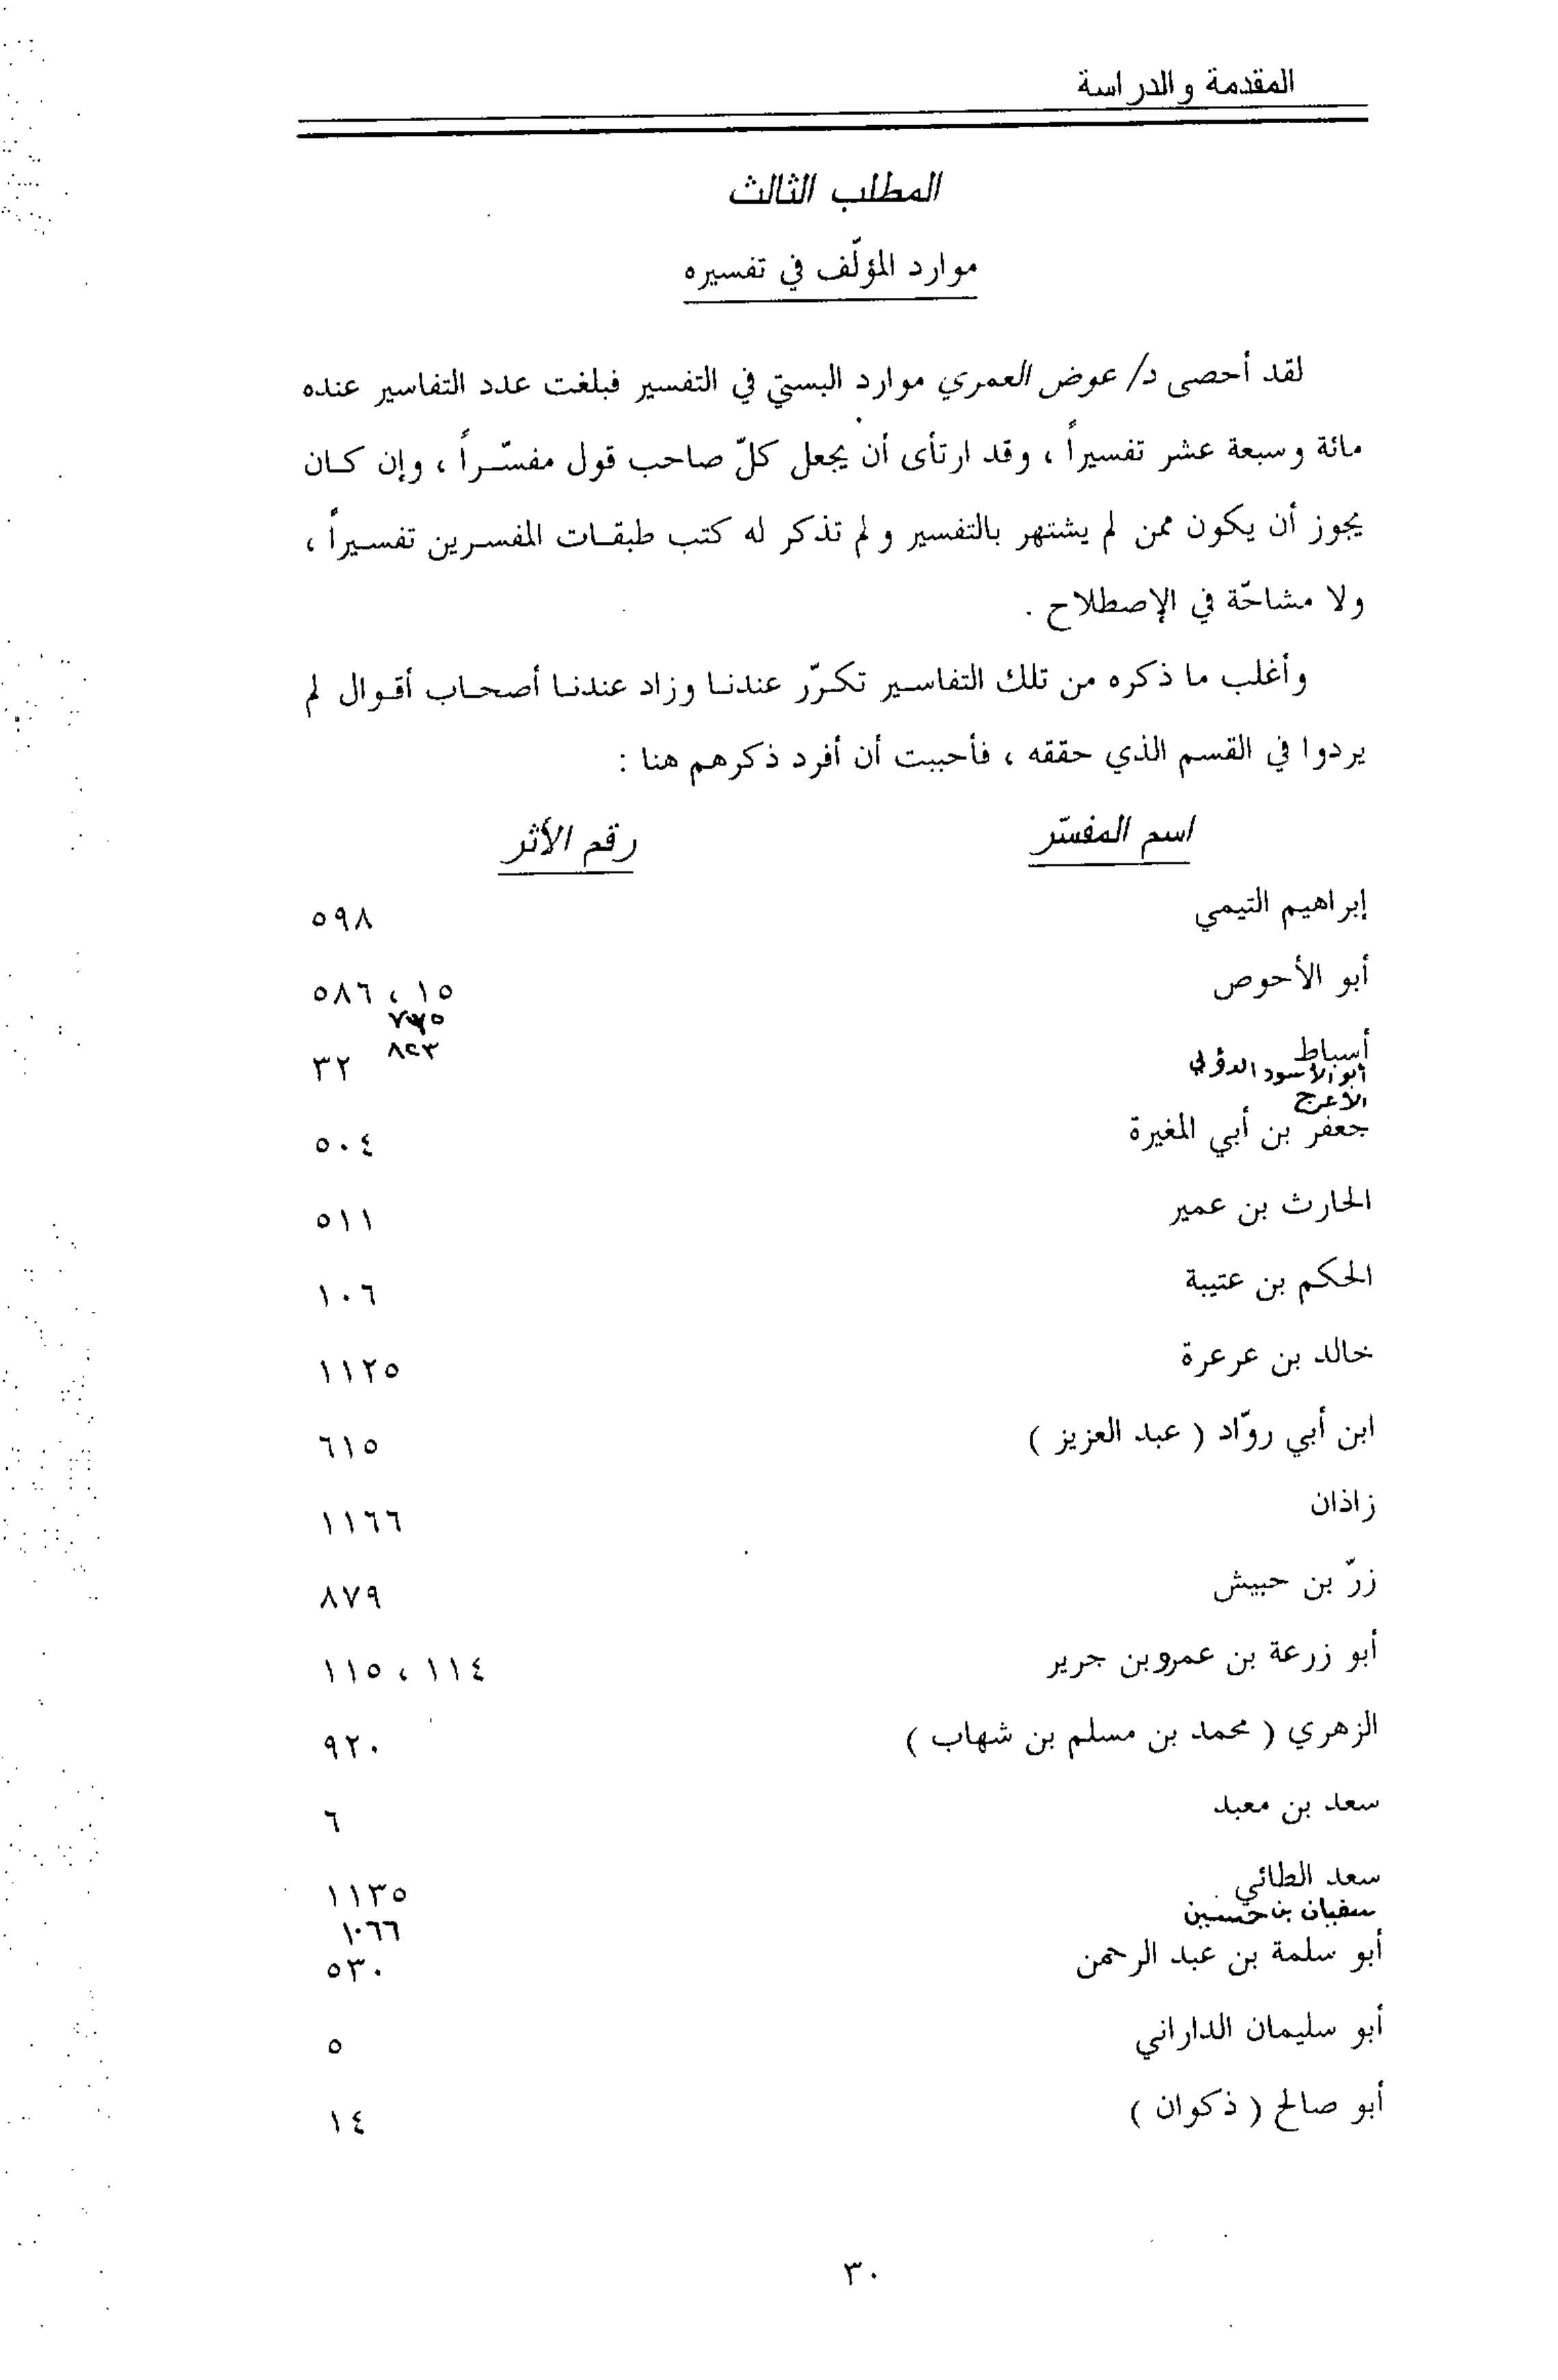 المقدمة والدراسة
المطلب الثالث
موارد المؤلّف في تفسيره
لقد أحصى د/ عوض العمري موارد البستيّ في التفسير فبلغت عدد التفاسير عنده
مائة وسبعة عشر تفسيراً ، وقد ارتأى أن يجعل كلّ صاحب قول مفسّراً ، وإن كان
يجوز أن يكون ممن لم يشتهر بالتفسير ولم تذكر له كتب طبقات المفسرين تفسيراً ،
ولا مشاحّة في الإصطلاح .
وأغلب ما ذكره من تلك التفاسير تكرّر عندنا وزاد عندنا أصحاب أقوال لم
يردوا في القسم الذي حققه ، فأحببت أن أفرد ذكرهم هنا :
اسم المفسّر رقم الأثر
إبراهيم التيمي ٥٩٨
أبو الأحوص ١٥ ، ٥٨٦
أسباط ٣٢
أبو الأسود الدؤلي
الأعرج ٨٢٣
جعفر بن أبي المغيرة ٥٠٤
الحارث بن عمير ٥١١
الحكم بن عتيبة ١٠٦
خالد بن عرعرة ١١٢٥
ابن أبي روّاد ( عبد العزيز ) ٦١٥
زاذان ١١٦٦
زرّ بن حبيش ٨٧٩
أبو زرعة بن عمرو بن جرير ١١٤ ، ١١٥
الزهري ( محمد بن مسلم بن شهاب ) ٩٢٠
سعد بن معبد ٦
سعد الطائي ١١٣٥
سفيان بن حسين ١٠٦٦
أبو سلمة بن عبد الرحمن ٥٣٠
أبو سليمان الداراني ٥
أبو صالح ( ذكوان ) ١٤
٣٠